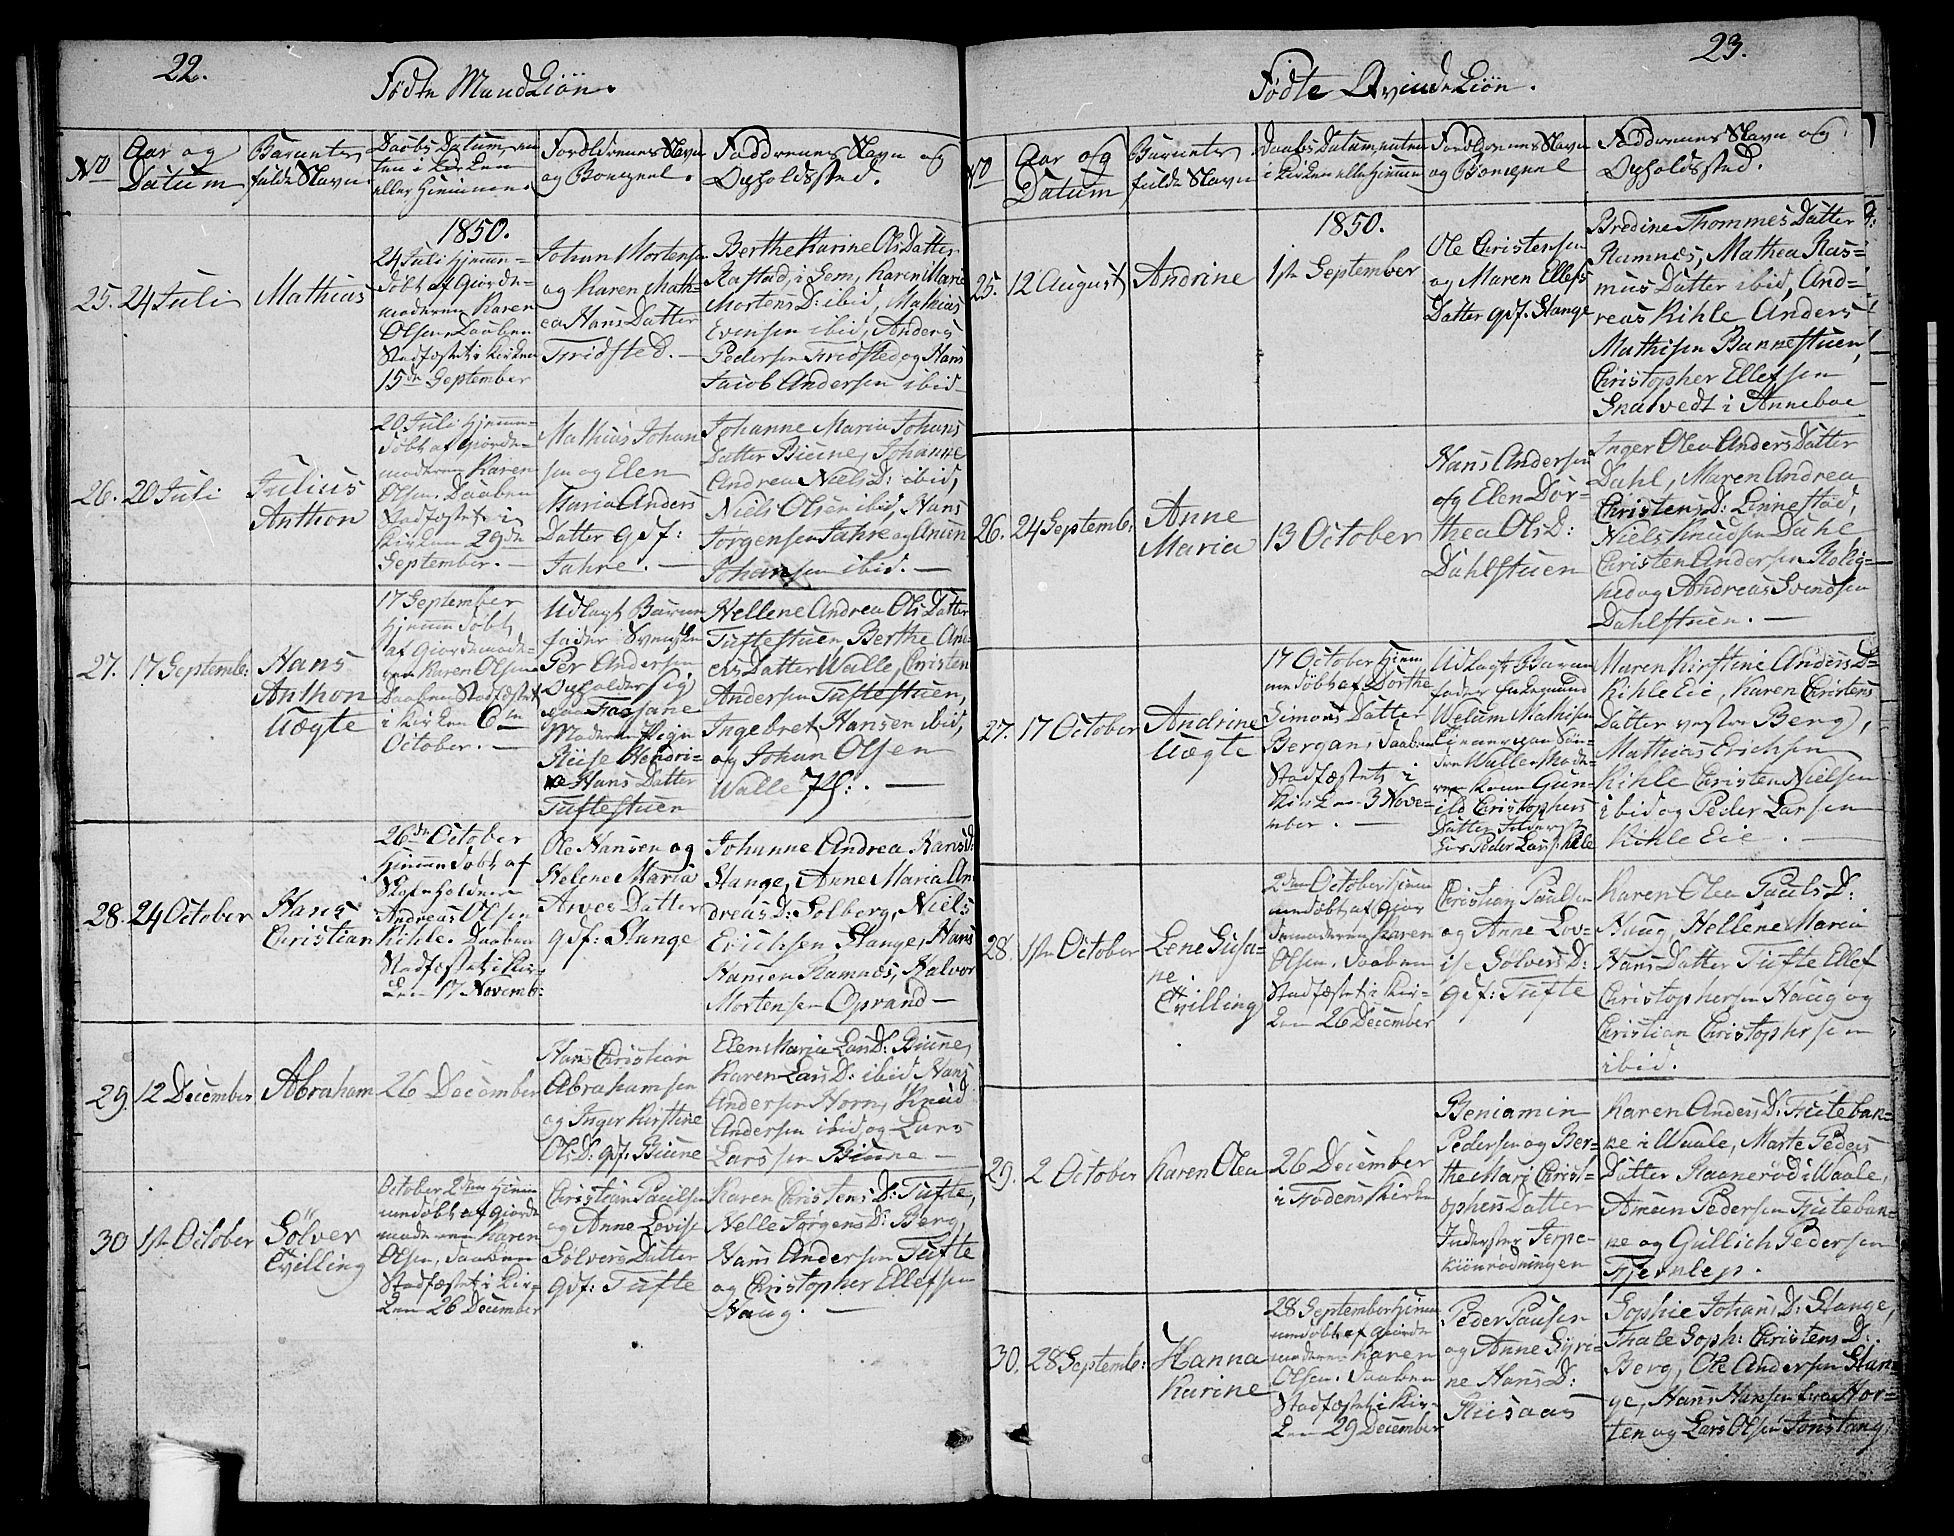 22.
Fødte Mandkiön.
No
Aar og
Datum
Barnets
fulde Navn.
Daabs Datum, en
ten i Kirken
eller Hjemme.
Forældrenes Navn
og Boepæl.
Faddernes Navn og
Opholdssted.
1850.
25.
24 Juli
Mathias
24 Juli Hjemme=
døbt af Giorde=
moderen Karen
Olsen, Daaben
Stadfæstet i Kirken
15de September
Johan Mortensen
og Karen Math=
ea Hans Datter
Fridsted. —
Berthe Karine Ols Datter
Rastad, i Sem, Karen Marie
Mortens D: ibid, Mathias
Evensen ibid, Anders
Pedersen Fridsted og Hans
Jacob Andersen ibid
26.
20 Juli
Julius
Anthon
20 Juli Hjemme=
døbt af Giorde=
moderen Karen
Olsen, Daaben
Stadfæstet i
Kirken 29de
September. —
Mathias Johan
sen og Elen
Maria Anders
Datter gdf:
Jahre. —
Johanne Maria Johans
Datter Biune, Johanne
Andrea Niels D: ibid,
Niels Olsen ibid, Hans
Jörgensen Jahre og
Johansen ibid. —
27.
17 Septemb:
Hans
Anthon
Uægte
17 September
Hjemmedøbt
af Giordemode=
ren Karen Olsen
Daaben Stadfæstet
i Kirken 6te
October. —
Udlagt Barne
fader Svensken
Per Andersen
Opholder sig
Moderen Pign
Hendri=
Hans Datter
Tuftestuen
Hellene Andrea Ols Datter
Tuftestuen, Berthe And
Datter Walle, Christen
Andersen Tuftestuen,
Ingebret Hansen ibid,
og Johan Olsen
Walle —
28.
24 October
Hans
Christian
26de October
Hjemmedøbt af
Andreas Olsen
Kihle. Daaben
Stadfæstet i Kir=
ken 17 Novemb:
Ole Hansen og
Helene Maria
Datter
gdf: Stange
Johanne Andrea Hans D:
Stange, Anne Maria An
dreas D: Solberg, Niels
Erichsen Stange, Hans
Hansen Ramnæs, Halvor
Mortensen Oprand —
29.
12 December
Abraham
26 December
Hans Christian
Abrahamsen
og Inger Kirstine
Ols D: gdf. Biune
Elen Maria Lars D: Biune,
Karen Lars D: ibid Hans
Andersen Horn, Knud
Andersen ibid og Lars
Larssen Biune —
30
1ste October
Sölver
Tvilling
October 2den Hjem
medøbt af Giorde
moderen Karen
Olsen, Daaben
Stadfæstet i Kir=
ken 26 December
Christian Paulsen
og Anne Lovise
Solvers Datter
gdf: Tufte
Karen Christens D: Tufte,
Nelle Jørgens D: Berg,
Hans Andersen Tufte
og Christopher Ellefsen
Haug. —
23.
Fødte Qvindekiön.
No
Aar og
Datum
Barnets
fulde Navn
Daabs Datum, enten
i Kirken eller Hjemme
Forældrenes Navn
og Boepæl
Faddrenes Navn og
Opholdssted.
1850.
25.
12 August
Andrine
1ste September
Ole Christensen
og Maren Ellefs
Datter gdf. Stange
Bredine Thommes Datter
Ramnæs, Mathea Ras=
mus Datter ibid, And=
reas Kihle Anders
Mathisen Bannestuen,
Christopher Ellefsen
Snatvedt i Anneboe
26.
24 Septemb:
Anne
Maria
13 October
Hans Andersen
og Elen Dor=
thea Ols D:
Dahlstuen
Inger Olea Anders Datter
Dahl, Maren Andrea
Christens D: Linnestad,
Niels Knudsen Dahl
Christen Andersen Rolig=
hed og Andreas Svendsen
Dahlstuen. —
27.
17 October
Andrine
Uægte
17 October Hjem
medöbt af Dorthe
Simons Datter
Bergan, Daaben
Stadfæstet i
Kirken 3 Nove=
mber. —
Udlagt Barne
fader
Welum Mathisen
Walle Mode=
ren Kone Gun=
ild Christophers
Datter
Peder Lars: Kihle
Maren Kirstine Anders D=
Kihle Eie, Karen Christens
Datter vestre Berg,
Mathias Erichsen
Kihle Christen Nielsen
ibid og Peder Larsen
Kihle Eie. —
28.
1ste October
Lene Susa=
ne
Tvilling
2den October Hjem
medøbt af Gior
demoderen Karen
Olsen, Daaben
Stadfæstet i Kir=
ken 26 December
Christian Paulsen
og Anne Lov=
ise Sølvers D:
gdf: Tufte
Karen Olea Paals D:
Haug, Hellene Maria
Hans Datter Tufte Ellef
Christophersen Haug og
Christian Christophersen
ibid.
29.
2 October
Karen Olea
26 December
i Fodens Kirke
Beniamin
Pedersen og Ber=
the Mari Christ=
ophers Datter
Inderster Torpe=
kiönrødningen
Karen Anders D:
ne i Waale, Marte Peders
Datter Raanerød i Waale,
Amun Pedersen
ne og Gullich Pedersen
30.
28 Septemb:
Hanna
Karine
28 September Hjem
medøbt af Giorde
moderen Karen
Olsen. Daaben
Stadfæstet i Kir=
ken 29 December
Peder Paulsen
og Anne Syri=
ne Hans D:
Riisaas
Sophie Johans D: Stange,
Thale Soph: Christens D:
Berg, Ole Andersen Stan=
ge, Hans Hansen fra Hor=
ten og Lars Olsen Jonstang